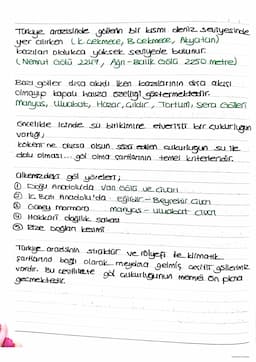 Türkiye arazisinde göllerin bir kısmı deniz seviyesinde
yer alırken (K.Çekmece, B.Çekmece, Akyatan)
bazıları oldukça yüksek seviyede bulunur.
(Nemrut Gölü 2247, Ağrı - Balık Gölü 2250 metre)
Bazı göller dışa akışlı iken bazılarının dışa akışı
olmayıp kapalı havza özelliği göstermektedir.
Manyas, Uluabat, Hazar, Çıldır, Tortum, Sera Gölleri
Öncelikle içinde su birikimine elverişli bir çukurluğun
varlığı,
kökeni ne olursa olsun çukurluğun su ile
dolu olması... göl olma şartlarının temel kriterleridir.
Ülkemizdeki göl yöreleri;
① Doğu Anadolu'da Van Gölü ve Civarı
② İç Batı Anadolu'da Eğirdir - Beyşehir Civarı
③ Güney Marmara Manyas - Uluabat Civarı
④ Hakkari dağlık sahası
⑤ Rize Dağları kesimi
Türkiye arazisinin strüktür ve rölyefi ile klimatik
şartlarına bağlı olarak meydana gelmiş çeşitli göllerimiz
vardır. Bu çeşitlilikte göl çukurluğunun menşei ön plana
geçmektedir.